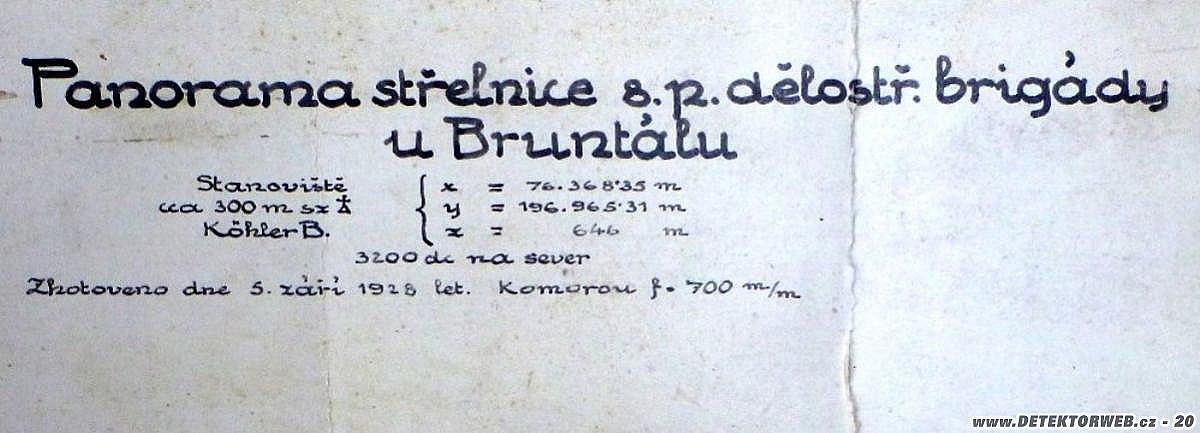 Panorama střelnice 8. p. dělostř. brigády
u Bruntálu
Stanoviště { x = 76.368·35 m
cca 300 m sz y = 196.965·31 m
Köhler B. z = 646 m
3200 dc na sever
Zhotoveno dne 5. září 1928 let. Komorou f = 700 m/m
www.DETEKTORWEB.cz - 20